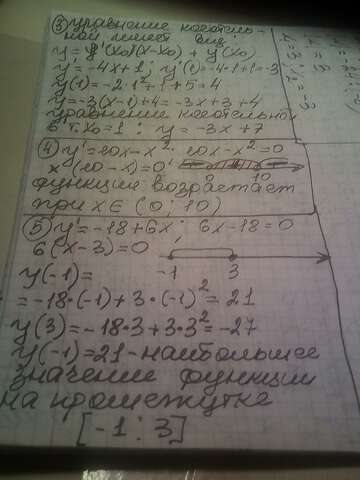 ③ уравнение касатель-
ной имеет вид:
y = y'(x₀)(x-x₀) + y(x₀)
y' = -4x+1; y'(1) = -4·1+1=-3
y(1) = -2·1²+1+5=4
y = -3(x-1)+4 = -3x+3+4
уравнение касательной
в т. x₀=1; y = -3x+7
④ y' = 10x-x²; 10x-x²=0
x(10-x)=0
0 10
функция возрастает
при x∈ (0; 10)
⑤ y' = -18+6x; 6x-18=0
6(x-3)=0
-1 3
y(-1) =
= -18·(-1) + 3·(-1)² = 21
y(3) = -18·3+3·3² = -27
y(-1) = 21 - наибольшее
значение функции
на промежутке
[-1; 3]